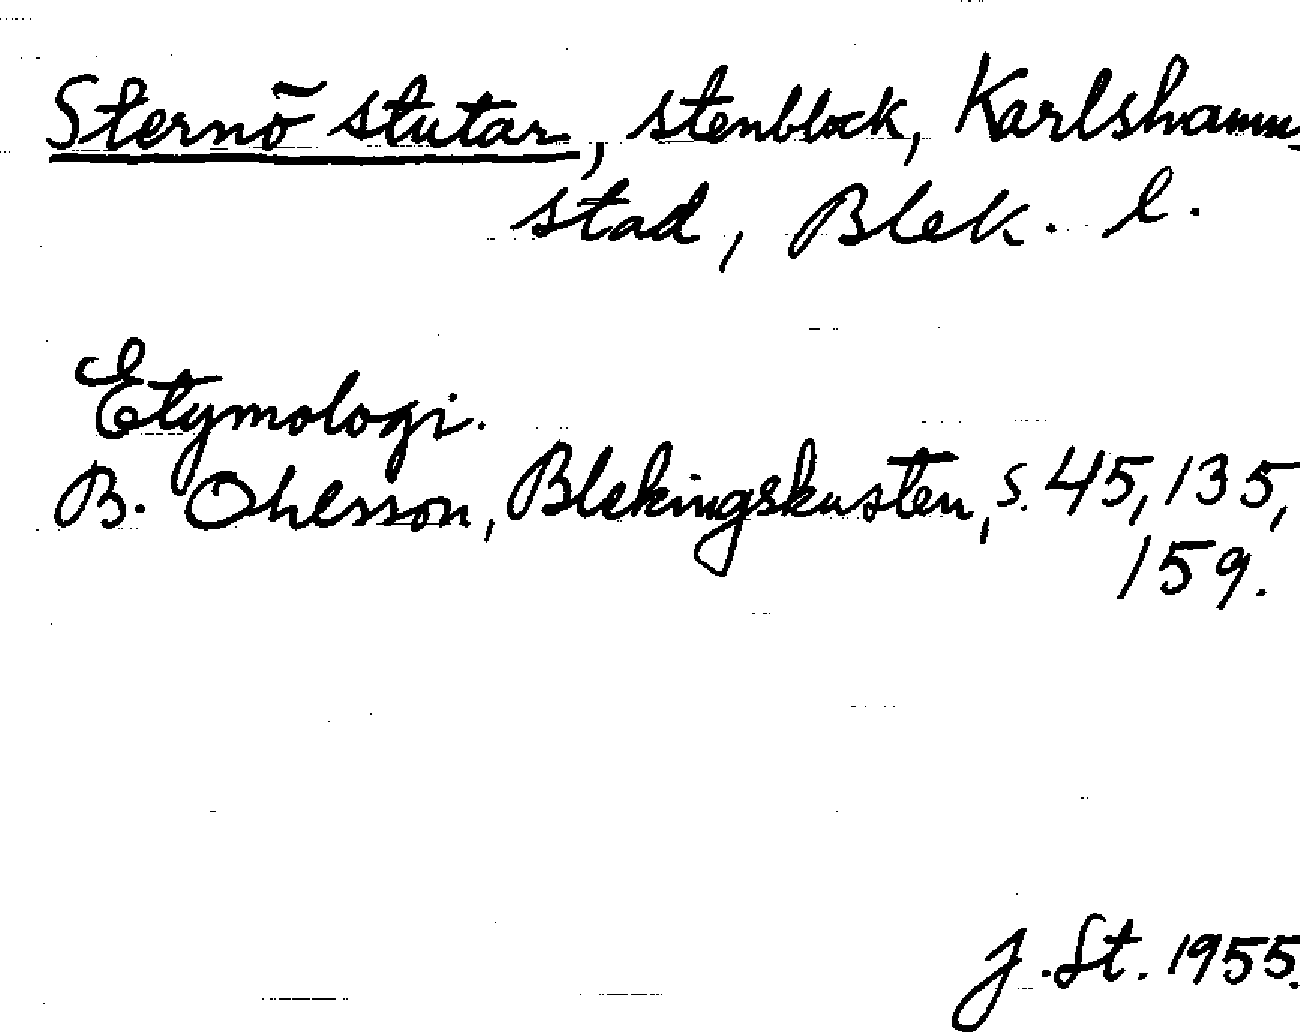 Sternö stutar, stenblock, Karlshamn
stad, Blek. l.
Etymologi.
B. Ohlsson, Blekingskusten, s. 45, 135,
159.
J. St. 1955.